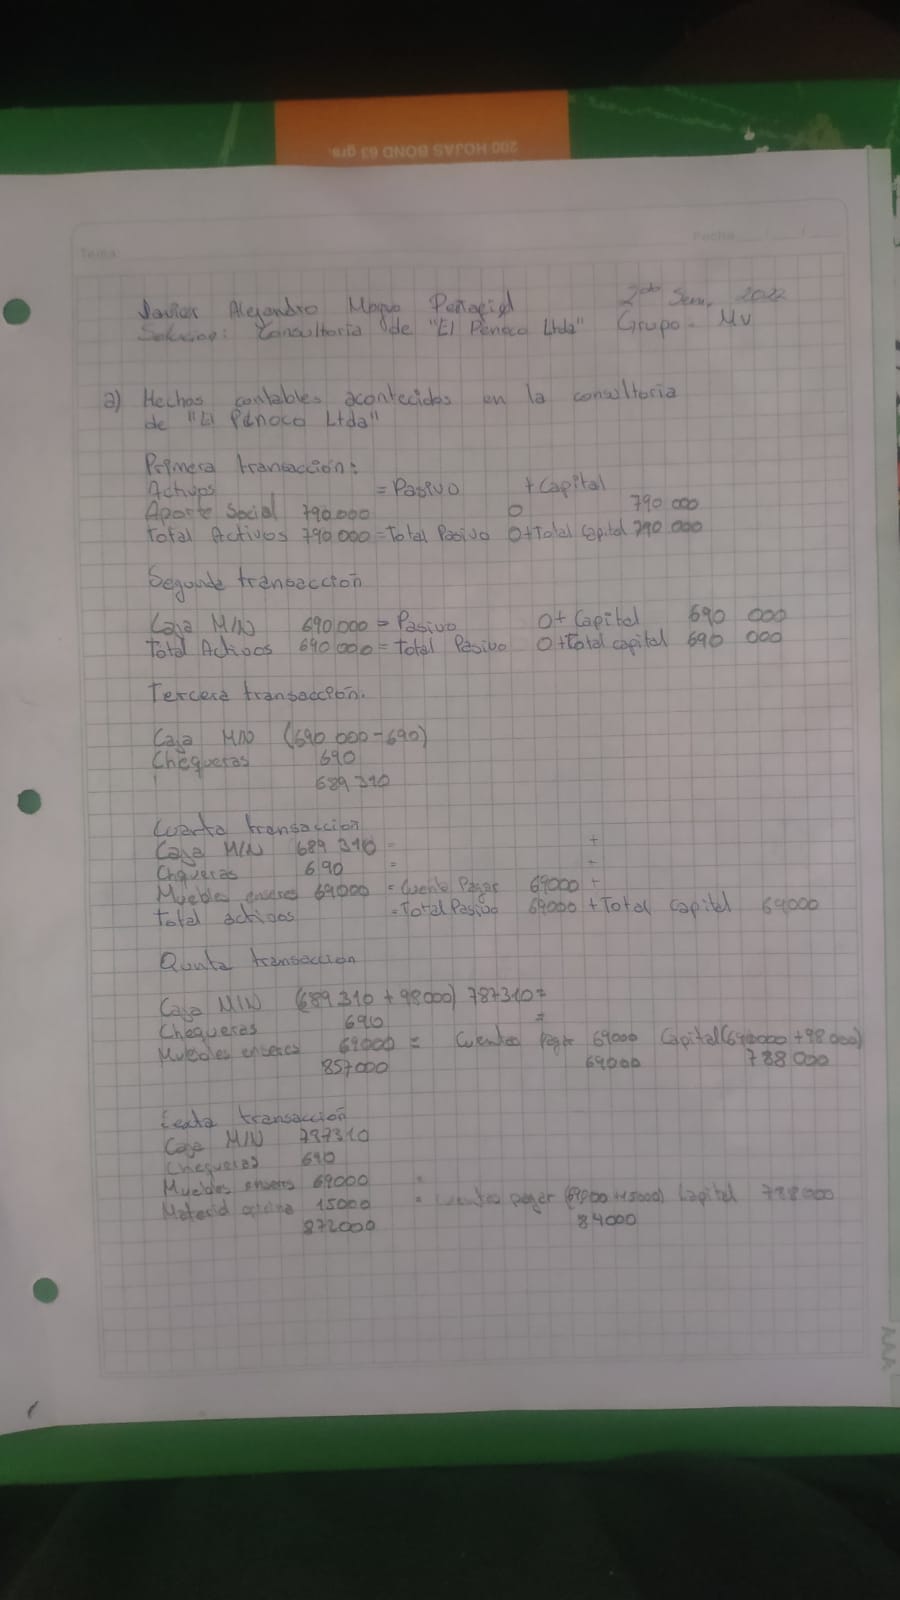 200 HOJAS BOND 63 grs.
Tema:
Fecha
Javier Alejandro Moguo Peñafiel 2do Sem. 2022
Solucion: Consultoria de "El Penoco Ltda" Grupo - MV
a) Hechos contables acontecidos en la consultoria
de "El Penoco Ltda"
Primera transacción:
Activos = Pasivo + Capital
Aporte Social 790.000 0 790 000
Total Activos 790 000 = Total Pasivo 0 + Total Capital 790 000
Segunda transaccion
Caja M/N 690.000 = Pasivo 0 + Capital 690 000
Total Activos 690 000 = Total Pasivo 0 + Total capital 690 000
Tercera transacción.
Caja M/N (690 000 - 690)
Chequeras 690
689 310
Cuarta transaccion
Caja M/N 689 310 = +
Chqueras 690 = -
Muebles enseres 69000 = Cuenta Pagar 69000 +
Total activos = Total Pasivo 69000 + Total Capital 69000
Qunta transaccion
Caja M/N (689 310 + 98000) 787310 =
Chequeras 690 =
Muebles enseres 69000 = Cuentas Pagar 69000 Capital (690000 + 98 000)
857000 69000 788 000
Sexta transacción
Caja M/N 787310
Chequeras 690
Muebles enseres 69000 =
Material 15000 = Cuentas pagar (69000 + 15000) Capital 788 000
872000 84000